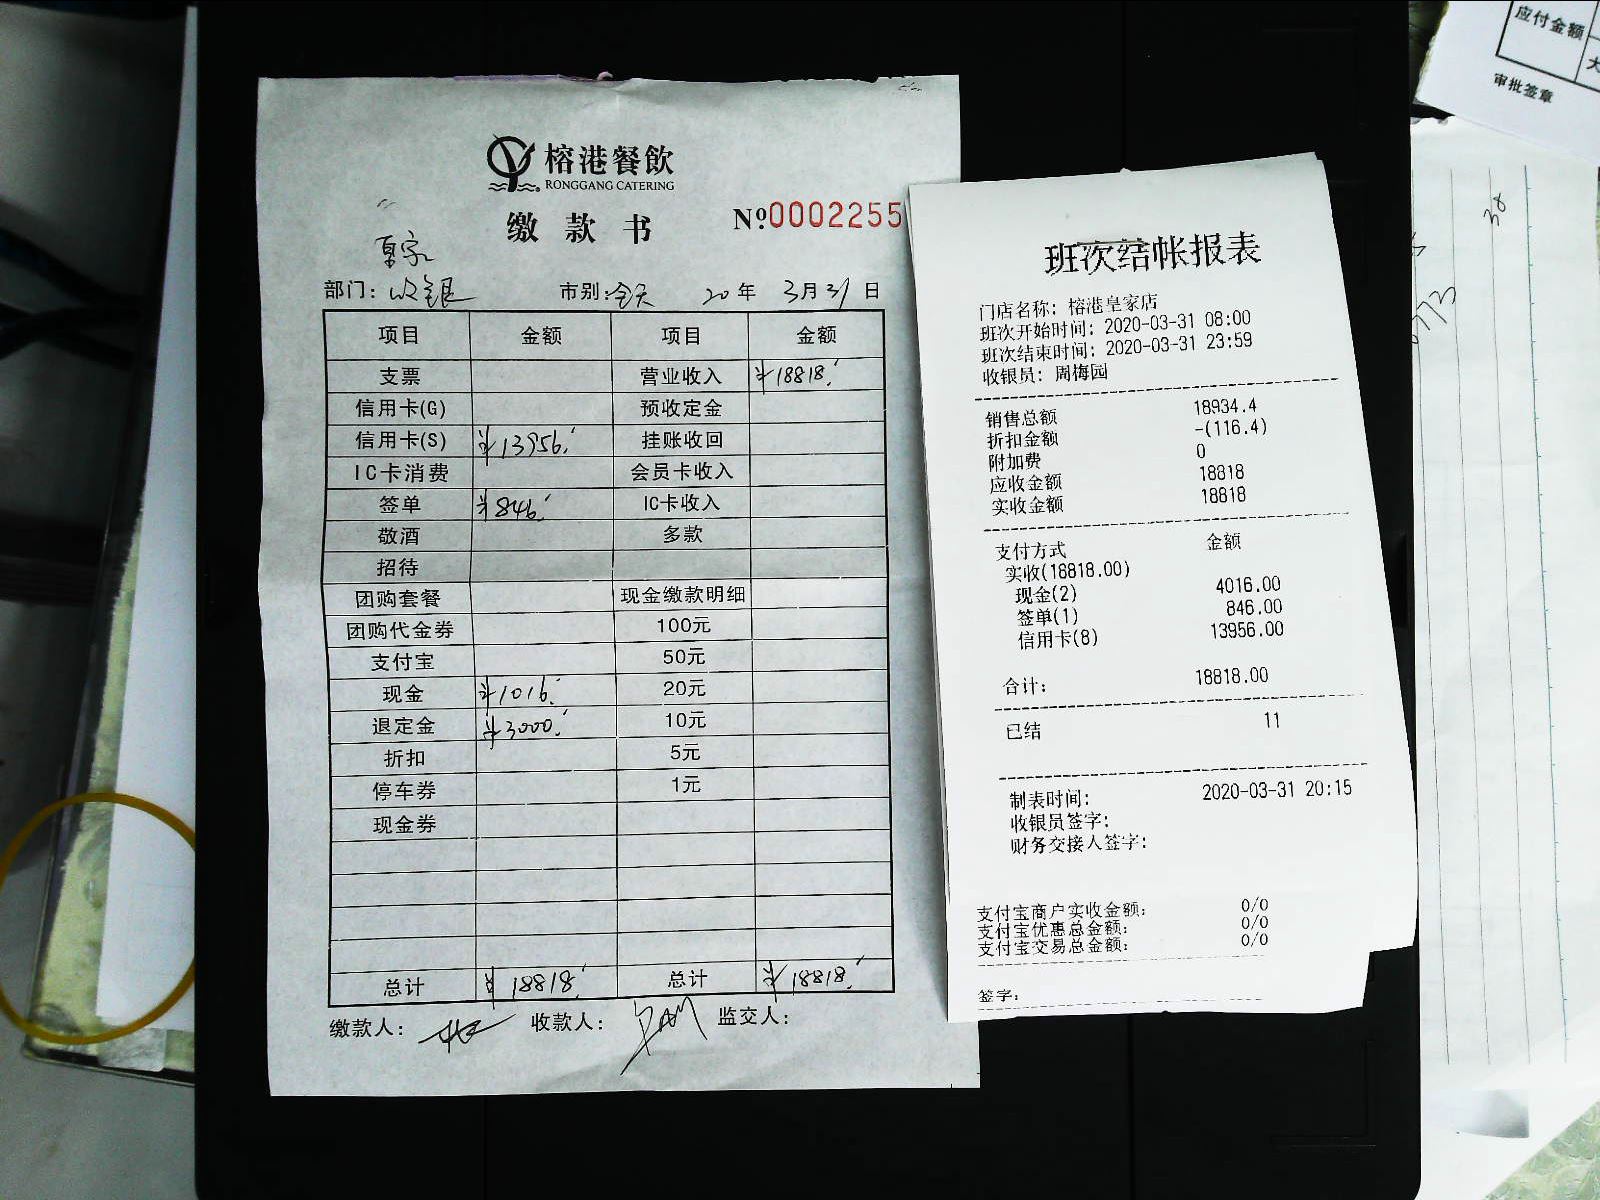 榕港餐飲
RONGGANG CATERING
缴款书
№0002255
皇家
部门：收银 市别：全天 20年3月31日
项目 金额 项目 金额
支票 营业收入 ¥18818.
信用卡(G) 预收定金
信用卡(S) ¥13956. 挂账收回
IC卡消费 会员卡收入
签单 ¥846. IC卡收入
敬酒 多款
招待
团购套餐 现金缴款明细
团购代金券 100元
支付宝 50元
现金 ¥1016. 20元
退定金 ¥3000. 10元
折扣 5元
停车券 1元
现金券
总计 ¥18818. 总计 ¥18818.
缴款人： 收款人： 监交人：
班次结帐报表
门店名称：榕港皇家店
班次开始时间：2020-03-31 08:00
班次结束时间：2020-03-31 23:59
收银员：周梅园
销售总额 18934.4
折扣金额 -(116.4)
附加费 0
应收金额 18818
实收金额 18818
支付方式 金额
实收(18818.00)
现金(2) 4016.00
签单(1) 846.00
信用卡(8) 13956.00
合计： 18818.00
已结 11
制表时间： 2020-03-31 20:15
收银员签字：
财务交接人签字：
支付宝商户实收金额： 0/0
支付宝优惠总金额： 0/0
支付宝交易总金额： 0/0
签字：
应付金额
大
审批签章
38